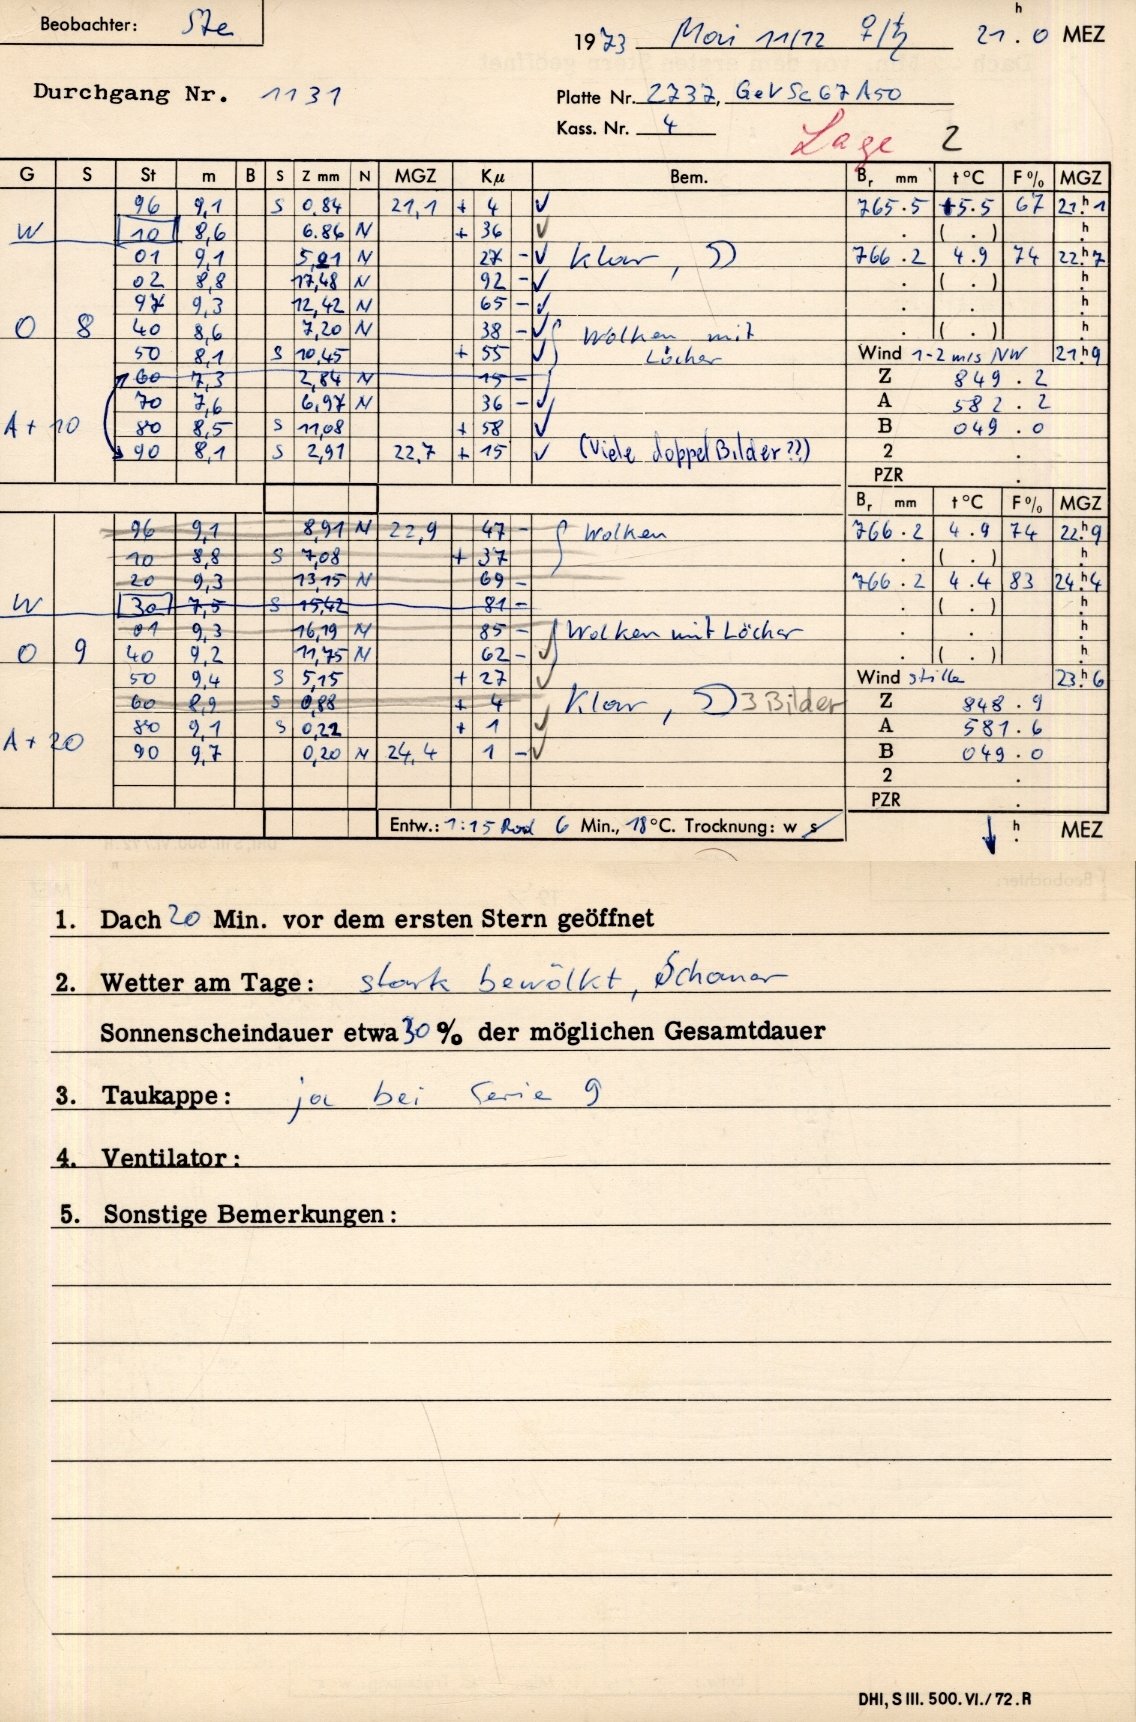 Beobachter: Ste
1973 Mai 11/12 ♀/♄ 21.ʰ0 MEZ
Durchgang Nr. 1131
Platte Nr. 2737, GeVSc67A50
Kass. Nr. 4
Lage 2
G S St m B S Z mm N MGZ Kμ Bem. Bᵣ mm t°C F% MGZ
96 9,1 S 0.84 21,1 + 4 ✓ 765.5 +5.5 67 21ʰ.1
W 10 8,6 6.86 N + 36 ✓ . ( . ) ʰ.
01 9,1 5,01 N 27 - ✓ Klar, 766.2 4.9 74 22ʰ.7
02 8,8 17,48 N 92 - ✓ . ( . ) ʰ.
97 9,3 12,42 N 65 - ✓ . . ʰ.
O 8 40 8,6 7,20 N 38 - ✓ Wolken mit . ( . ) ʰ.
50 8,1 S 10,45 + 55 ✓ Löcher Wind 1-2 m/s NW 21ʰ.9
60 7,3 2,84 N 15 - Z 849.2
70 7,6 6,97 N 36 - ✓ A 582.2
A+10 80 8,5 S 11,08 + 58 ✓ B 049.0
90 8,1 S 2,91 22,7 + 15 ✓ (Viele doppelBilder??) 2 .
PZR .
Bᵣ mm t°C F% MGZ
96 9,1 8,91 N 22,9 47 - Wolken 766.2 4.9 74 22ʰ.9
10 8,8 S 7,08 + 37 . ( . ) ʰ.
20 9,3 13,15 N 69 - 766.2 4.4 83 24ʰ.4
W 30 7,5 S 15,42 81 - . ( . ) ʰ.
01 9,3 16,19 N 85 - Wolken mit Löcher . . ʰ.
O 9 40 9,2 11,75 N 62 - ✓ . ( . ) ʰ.
50 9,4 S 5,15 + 27 ✓ Wind stille 23ʰ.6
60 8,9 S 0,88 + 4 Klar, 3 Bilder Z 848.9
80 9,1 S 0,22 + 1 ✓ A 581.6
A+20 90 9,7 0,20 N 24,4 1 - ✓ B 049.0
2 .
PZR .
Entw.: 1:15 Rod 6 Min., 18°C. Trocknung: w s ↓ ʰ. MEZ
1. Dach 20 Min. vor dem ersten Stern geöffnet
2. Wetter am Tage: stark bewölkt, Schauer
Sonnenscheindauer etwa 30 % der möglichen Gesamtdauer
3. Taukappe: ja bei Serie 9
4. Ventilator:
5. Sonstige Bemerkungen:
DHI, S III. 500. VI./72. R